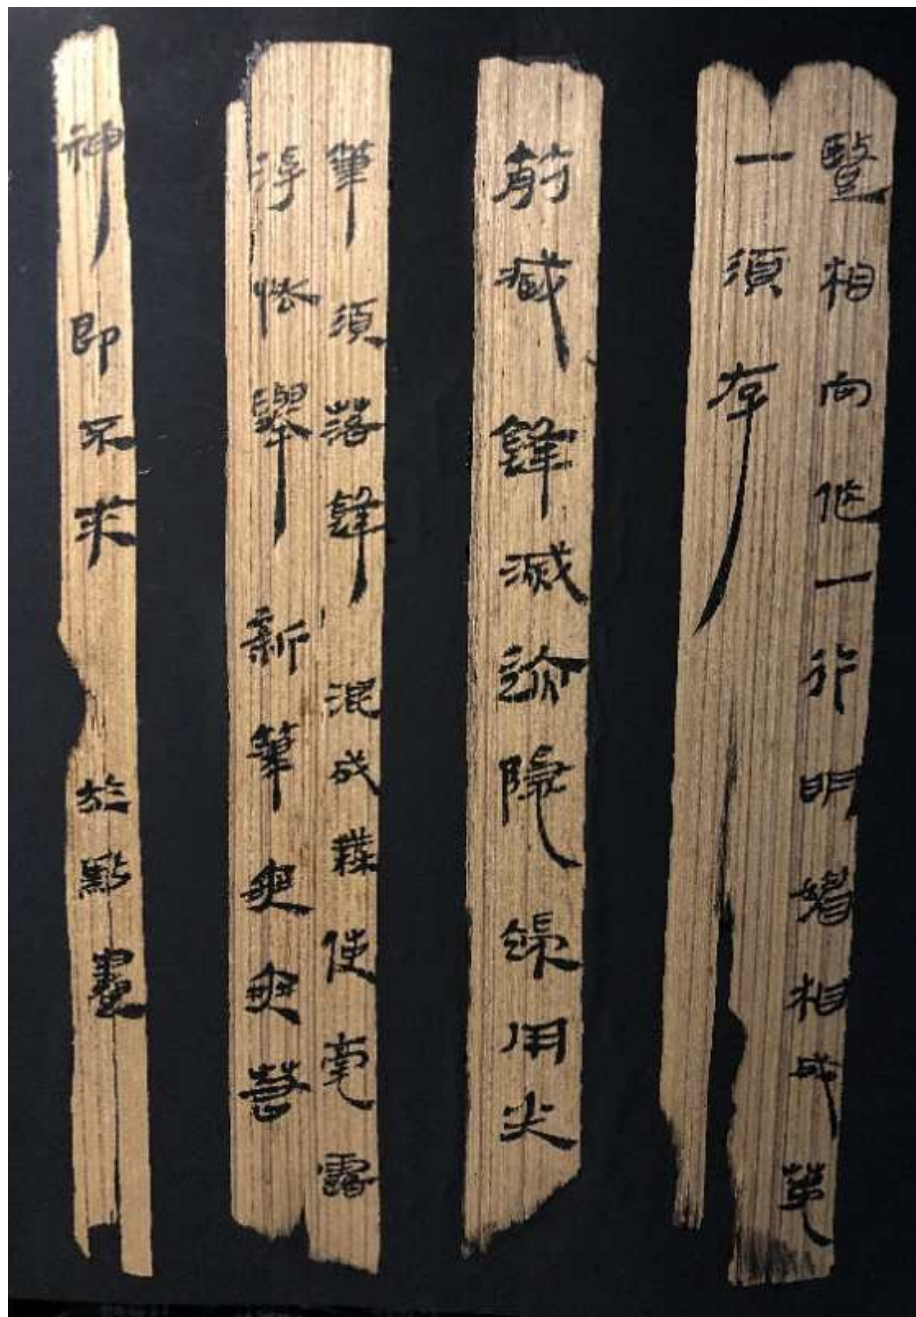 豎相向作一行明媚相成第
一須存
筋藏鋒滅跡隱端用尖
筆須落鋒混成無使毫露
浮怯舉新筆爽爽若
神即不求於點畫